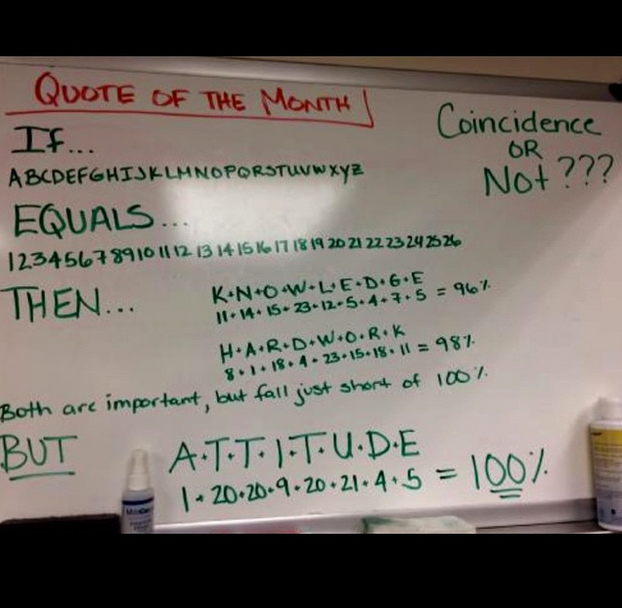 QUOTE OF THE MONTH
Coincidence
OR
Not ???
If...
ABCDEFGHIJKLMNOPQRSTUVWXYZ
EQUALS...
1 2 3 4 5 6 7 8 9 10 11 12 13 14 15 16 17 18 19 20 21 22 23 24 25 26
THEN...
K+N+O+W+L+E+D+G+E
11+14+15+23+12+5+4+7+5 = 96%
H+A+R+D+W+O+R+K
8+1+18+4+23+15+18+11 = 98%
Both are important, but fall just short of 100%
BUT
A+T+T+I+T+U+D+E
1+20+20+9+20+21+4+5 = 100%